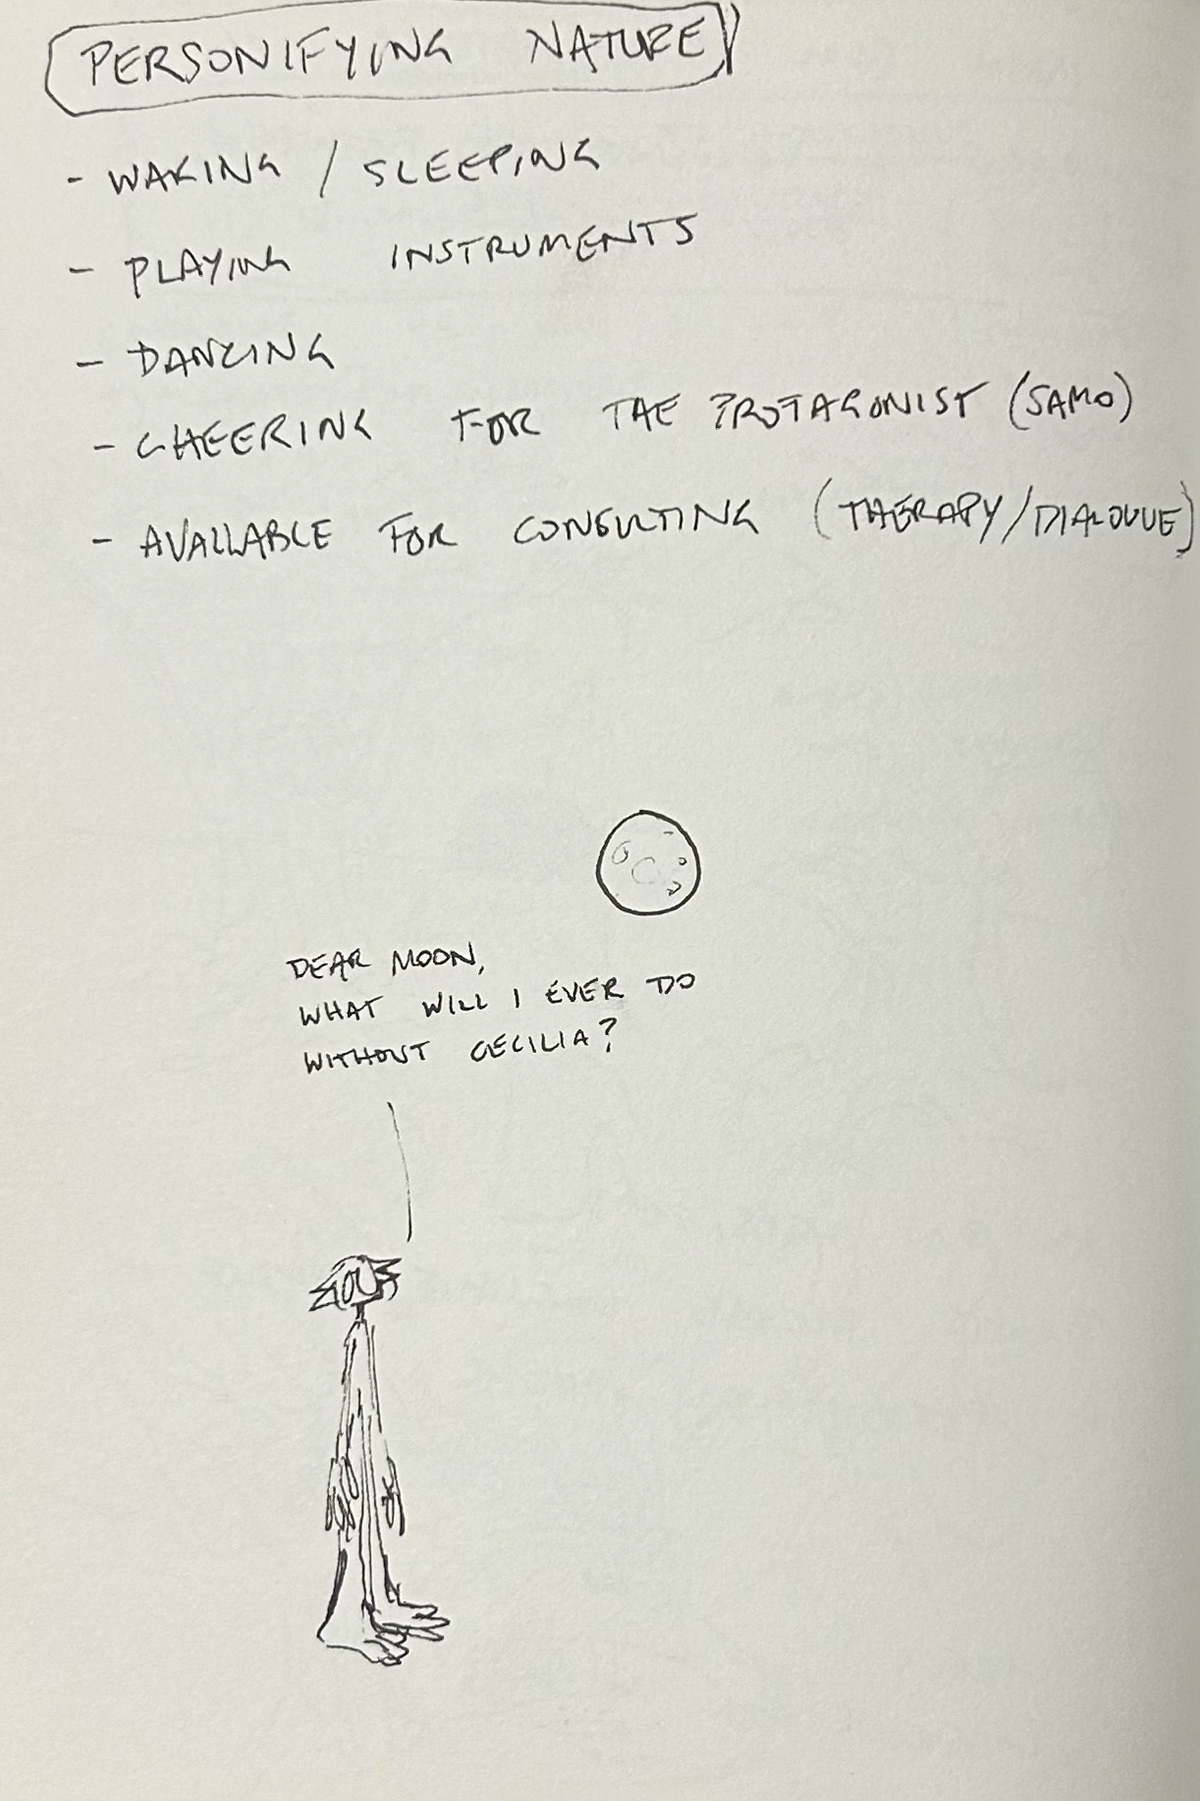 PERSONIFYING NATURE
- WAKING / SLEEPING
- PLAYING INSTRUMENTS
- DANCING
- CHEERING FOR THE PROTAGONIST (SAMO)
- AVAILABLE FOR CONSULTING (THERAPY/DIALOGUE)
DEAR MOON,
WHAT WILL I EVER DO
WITHOUT CECILIA?